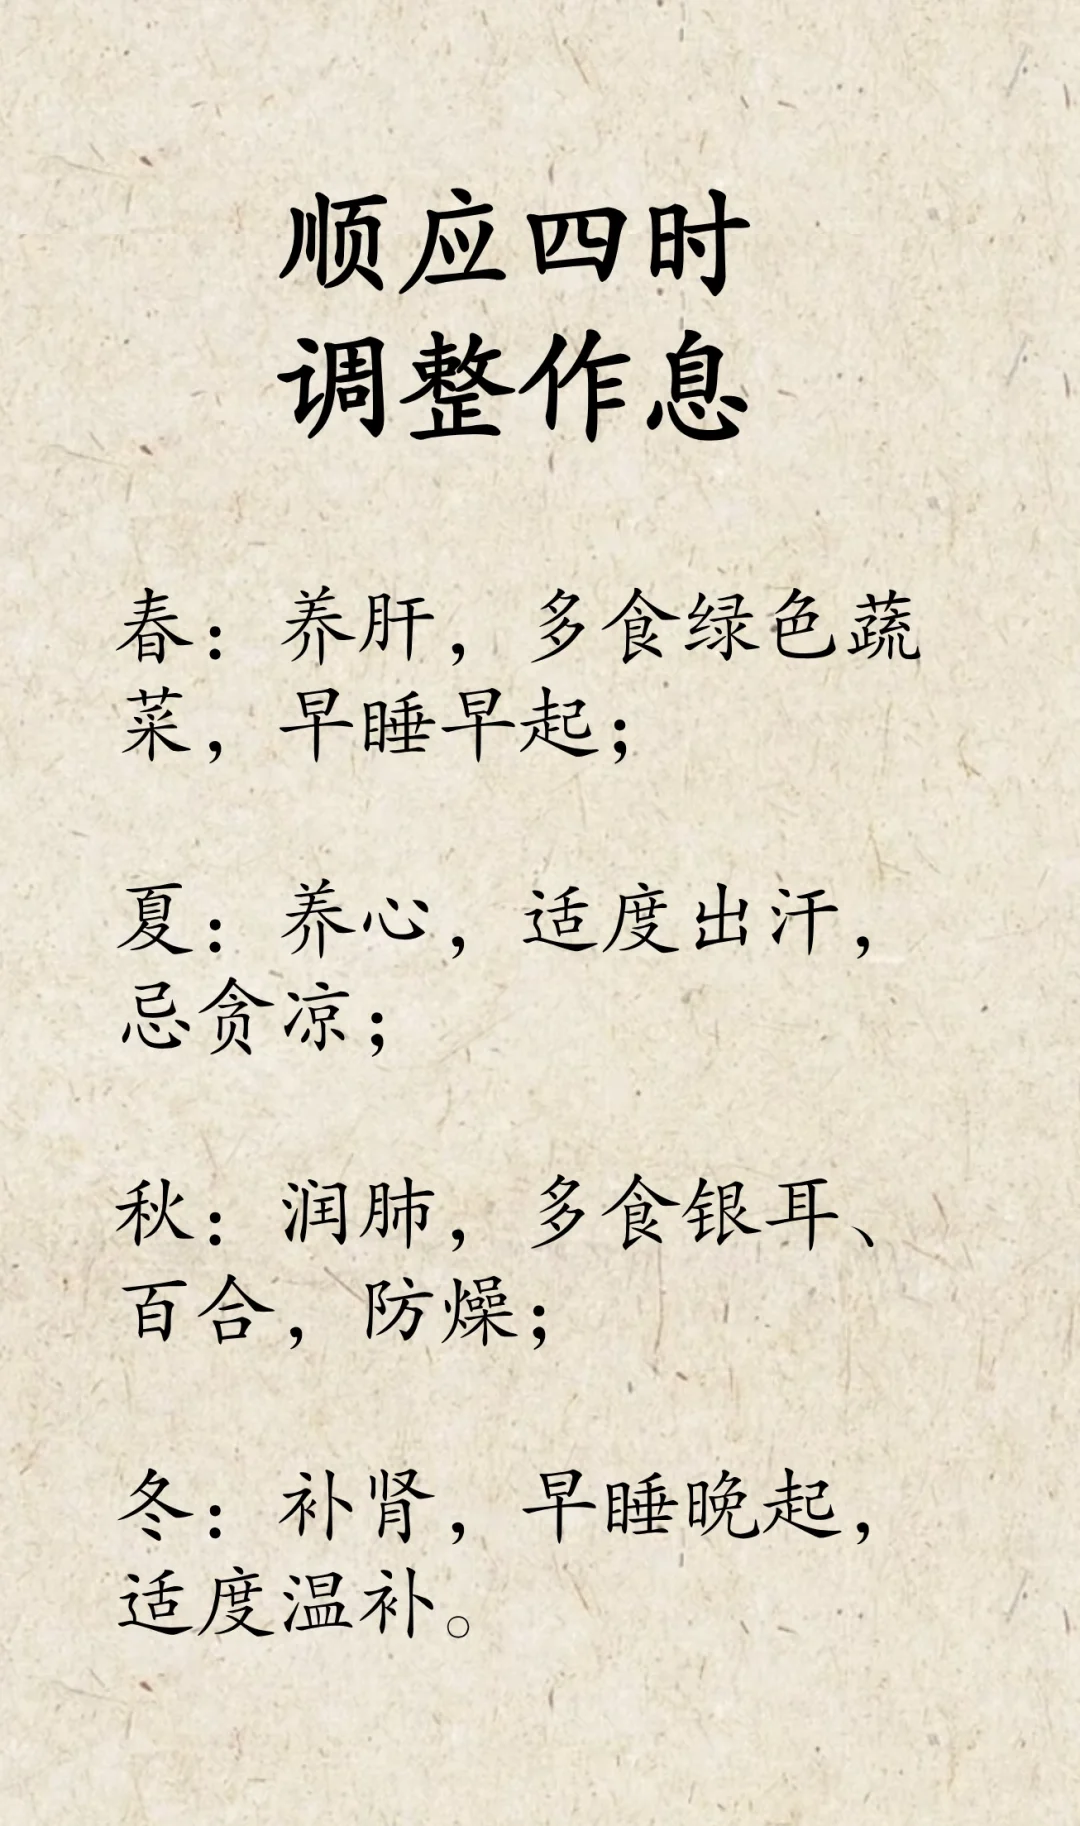 顺应四时
调整作息
春：养肝，多食绿色蔬
菜，早睡早起；
夏：养心，适度出汗，
忌贪凉；
秋：润肺，多食银耳、
百合，防燥；
冬：补肾，早睡晚起，
适度温补。